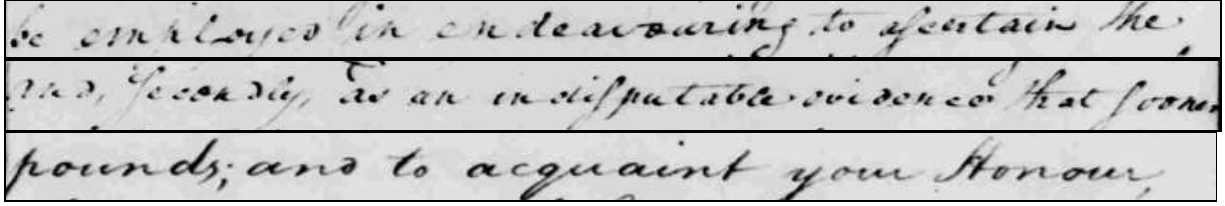 be employed in endeavouring to ascertain the
and, Secondly, as an indisputable evidence that sooner
pounds; and to acquaint your Honour,